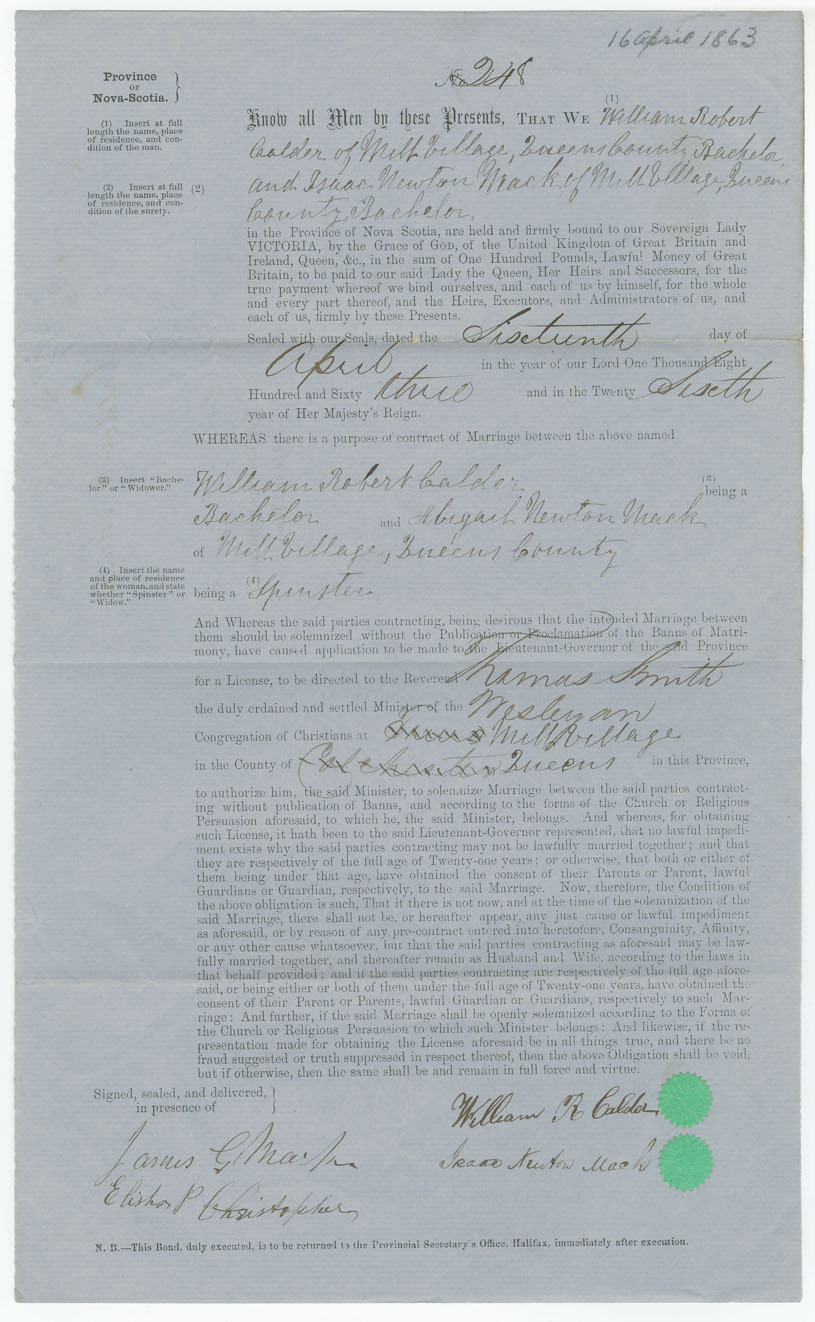 16 April 1863
No 248
Province
OF
Nova-Scotia.
(1) Insert at full
length the name, place
of residence, and con-
dition of the man.
(2) Insert at full
length the name, place
of residence, and con-
dition of the surety.
Know all Men by these Presents, THAT WE (1) William Robert
Calder of Mill Village, Queens County, Bachelor,
(2) and Isaac Newton Mack, of Mill Village, Queens
County, Bachelor,
in the Province of Nova Scotia, are held and firmly bound to our Sovereign Lady
VICTORIA, by the Grace of GOD, of the United Kingdom of Great Britain and
Ireland, Queen, &c., in the sum of One Hundred Pounds, Lawful Money of Great
Britain, to be paid to our said Lady the Queen, Her Heirs and Successors, for the
true payment whereof we bind ourselves, and each of us by himself, for the whole
and every part thereof, and the Heirs, Executors, and Administrators of us, and
each of us, firmly by these Presents.
Sealed with our Seals, dated the Sixteenth day of
April in the year of our Lord One Thousand Eight
Hundred and Sixty three and in the Twenty Sixth
year of Her Majesty's Reign.
WHEREAS there is a purpose of contract of Marriage between the above named
(3) Insert "Bache-
lor" or "Widower."
William Robert Calder (3) being a
Bachelor and Abigail Newton Mack
of Mill Village, Queens County
(4) Insert the name
and place of residence
of the woman, and state
whether "Spinster" or
"Widow."
being a (4) Spinster
And Whereas the said parties contracting, being desirous that the intended Marriage between
them should be solemnized without the Publication or Proclamation of the Banns of Matri-
mony, have caused application to be made to the Lieutenant-Governor of the said Province
for a License, to be directed to the Reverend Thomas Smith
the duly ordained and settled Minister of the Wesleyan
Congregation of Christians at Mill Village
in the County of Colchester Queens in this Province,
to authorize him, the said Minister, to solemnize Marriage between the said parties contract-
ing without publication of Banns, and according to the forms of the Church or Religious
Persuasion aforesaid, to which he, the said Minister, belongs. And whereas, for obtaining
such License, it hath been to the said Lieutenant-Governor represented, that no lawful impedi-
ment exists why the said parties contracting may not be lawfully married together; and that
they are respectively of the full age of Twenty-one years; or otherwise, that both or either of
them being under that age, have obtained the consent of their Parents or Parent, lawful
Guardians or Guardian, respectively, to the said Marriage. Now, therefore, the Condition of
the above obligation is such, That if there is not now, and at the time of the solemnization of the
said Marriage, there shall not be, or hereafter appear, any just cause or lawful impediment
as aforesaid, or by reason of any pre-contract entered into heretofore, Consanguinity, Affinity,
or any other cause whatsoever, but that the said parties contracting as aforesaid may be law-
fully married together, and thereafter remain as Husband and Wife, according to the laws in
that behalf provided; and if the said parties contracting are respectively of the full age afore-
said, or being either or both of them under the full age of Twenty-one years, have obtained the
consent of their Parent or Parents, lawful Guardian or Guardians, respectively to such Mar-
riage: And further, if the said Marriage shall be openly solemnized according to the Forms of
the Church or Religious Persuasion to which such Minister belongs: And likewise, if the re-
presentation made for obtaining the License aforesaid be in all things true, and there be no
fraud suggested or truth suppressed in respect thereof, then the above Obligation shall be void,
but if otherwise, then the same shall be and remain in full force and virtue.
Signed, sealed, and delivered,
in presence of
William R Calder
James G Mack
Isaac Newton Mack
Elisha P Christopher
N. B.—This Bond, duly executed, is to be returned to the Provincial Secretary's Office, Halifax, immediately after execution.